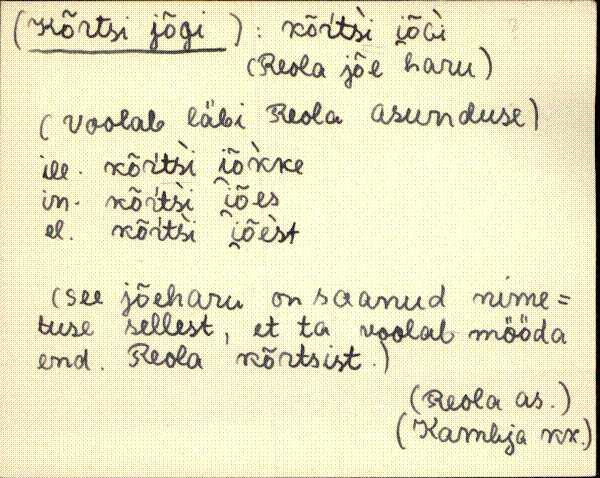 (Kõrtsi jõgi) : kõŕtsì i̯õGì
(Reola jõe haru)
(Voolab läbi Reola asunduse)
ill. kõŕtsì i̯õk̀ke
in. kõŕtsì i̯ões
el. kõŕtsì i̯õèst
(see jõeharu on saanud nime=
tuse sellest, et ta voolab mööda
end. Reola kõrtsist.)
(Reola as.)
(Kambja kx.)